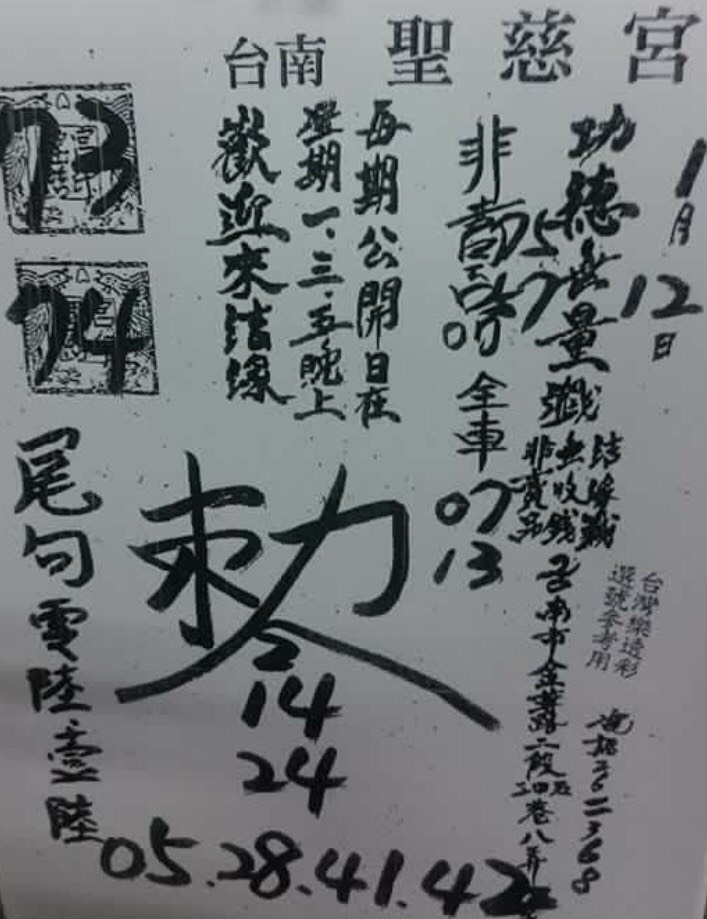 台南 聖慈宮
1月
12日
功德無量
結緣
無收錢
非賣品
台灣樂透彩
選號參考用
台南市金華路二段
巷八弄
非
57
全車
07
13
每期公開日在
星期一、三、五晚上
歡迎來結緣
73
74
勅
2
14
24
尾句零陸壹陸
05.28.41.42